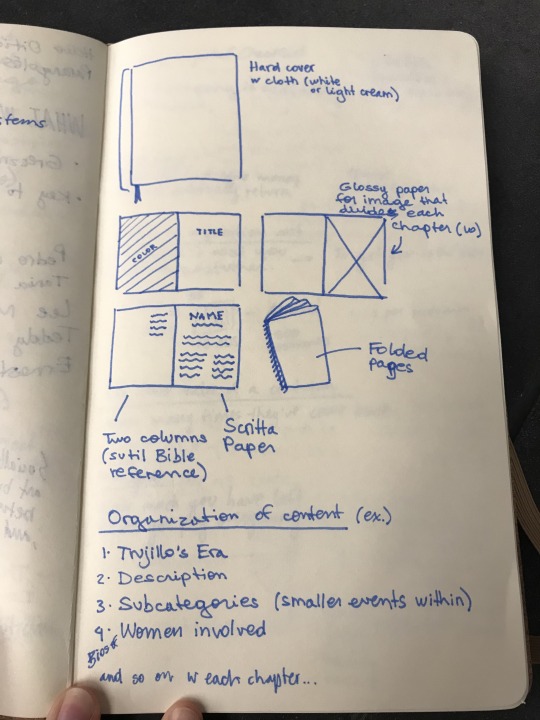 Hard cover
w cloth (white
or light cream)
Glossy paper
for image that
divides each
chapter (10)
COLOR
TITLE
NAME
Folded
pages
Two columns
(sutil Bible
reference)
Scritta
Paper
Organization of content (ex.)
1. Trujillo's Era
2. Description
3. Subcategories (smaller events within)
4. Women involved
Bios
and so on w each chapter...